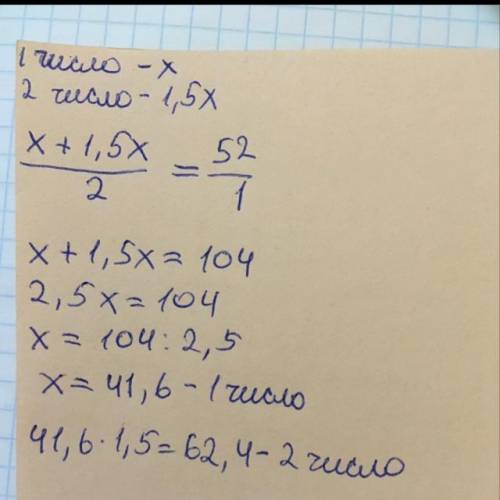 1 число - x
2 число - 1,5x
x + 1,5x / 2 = 52 / 1
x + 1,5x = 104
2,5x = 104
x = 104 : 2,5
x = 41,6 - 1 число
41,6 · 1,5 = 62,4 - 2 число